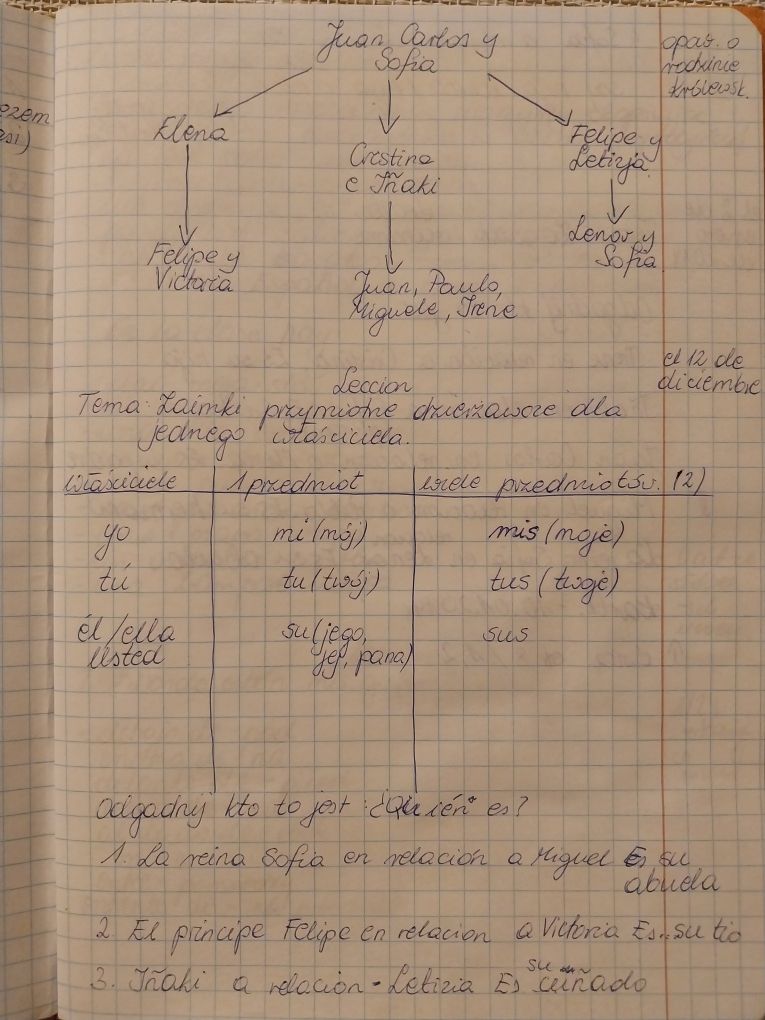 Juan Carlos y
Sofia
opow. o
rodzinie
królewsk.
Elena
Crstina
e Iñaki
Felipe y
Letizja
Felipe y
Victoria
Juan, Paulo,
Miguele, Irene
Lenor y
Sofia
el 12 de
diciembre
Leccion
Tema: Zaimki przymiotne dzierżawcze dla
jednego właściciela.
właściciele 1 przedmiot wiele przedmiotów. (2)
yo mi (mój) mis (moje)
tú tu (twój) tus (twoje)
él/ella su (jego, sus
Usted jej, pana)
Odgadnij kto to jest: ¿Quién es?
1. La reina Sofia en relación a Miguel Es su
abuela
2. El principe Felipe en relacion a Victoria Es.. su tio
3. Iñaki a relacion - Letizia Es su cuñado